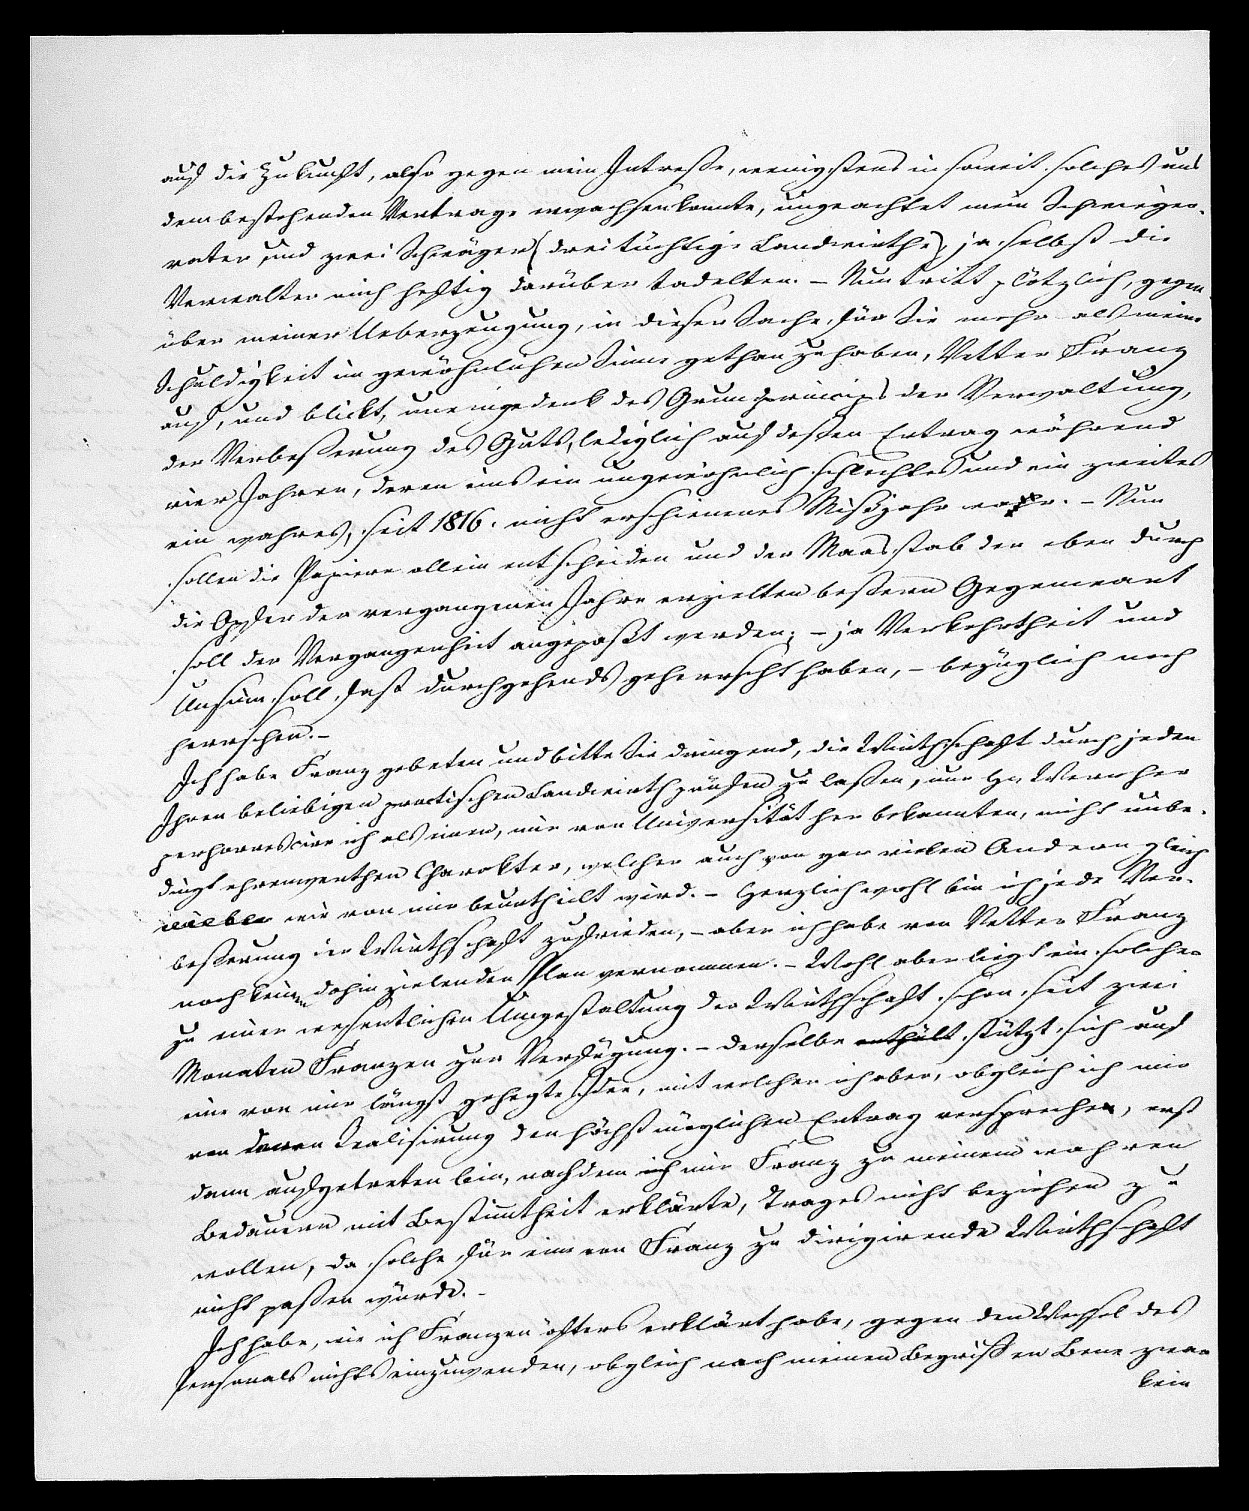 auf die Zukunft, also gegen mein Intreße, wenigstens in soweit solches aus
dem bestehenden Vertrage erwachsen konnte, ungeachtet mein Schwieger-
vater und zwei Schwäger (drei tüchtige Landwirthe) ja selbst die
Verwalter mich heftig darüber tadelten. – Nun tritt plötzlich, gegen-
über meiner Ueberzeugung, in dieser Sache für Sie mehr als meine
Schuldigkeit im gewöhnlichen Sinne gethan zu haben, Vetter Franz
auf, und blickt, uneingedenk des Grundprincips der Verwaltung,
der Verbeßerung des Guts, lediglich auf deßen Ertrag während
vier Jahren, deren eins ein ungewöhnlich schlechtes und ein zweites
ein wahres, seit 1816. nicht erschienenes Mißjahr war. – Nun
sollen die Papiere allein entscheiden und der Maasstab der eben durch
die Opfer der vergangenen Jahre erzielten beßern Gegenwart
soll der Vergangenheit angepaßt werden; – ja Verkehrtheit und
Unsinn soll fast durchgehends geherrscht haben, – bezüglich noch
herrschen. –
Ich habe Franz gebeten und bitte Sie dringend, die Wirthschaft durch jeden
Ihren beliebigen practischen Landwirth prüfen zu laßen, nur H. Wernher
perhorrescire ich als einen, mir von Universität her bekannten, nicht unbe-
dingt ehrenwerthen Charakter, welcher auch von gar vielen Andern gleich
wie von mir beurtheilt wird. – Herzlich wohl bin ich jede Ver-
beßerung der Wirthschaft zufrieden, – aber ich habe von Vetter Franz
noch keinen dahin zielenden Plan vernommen. – Wohl aber liegt ein solcher
zu einer wesentlichen Umgestaltung der Wirthschaft schon seit zwei
Monaten Franzen zur Verfügung. – derselbe enthält stützt sich auf
eine von mir längst gehegte Idee, mit welcher ich aber, obgleich ich mir
von deren Realisirung den höchst möglichen Ertrag verspreche, erst
dann aufgetreten bin, nachdem mir Franz zu meinem wahren
Bedauern mit Bestimmtheit erklärte, Trages nicht beziehen zu
wollen, da solche für eine von Franz zu dirigirende Wirthschaft
nicht paßen würde. –
Ich habe, wie ich Franzen öfters erklärt habe, gegen den Wechsel des
Personals nichts einzuwenden, obgleich nach meinen Begriffen Bene zwar
kein